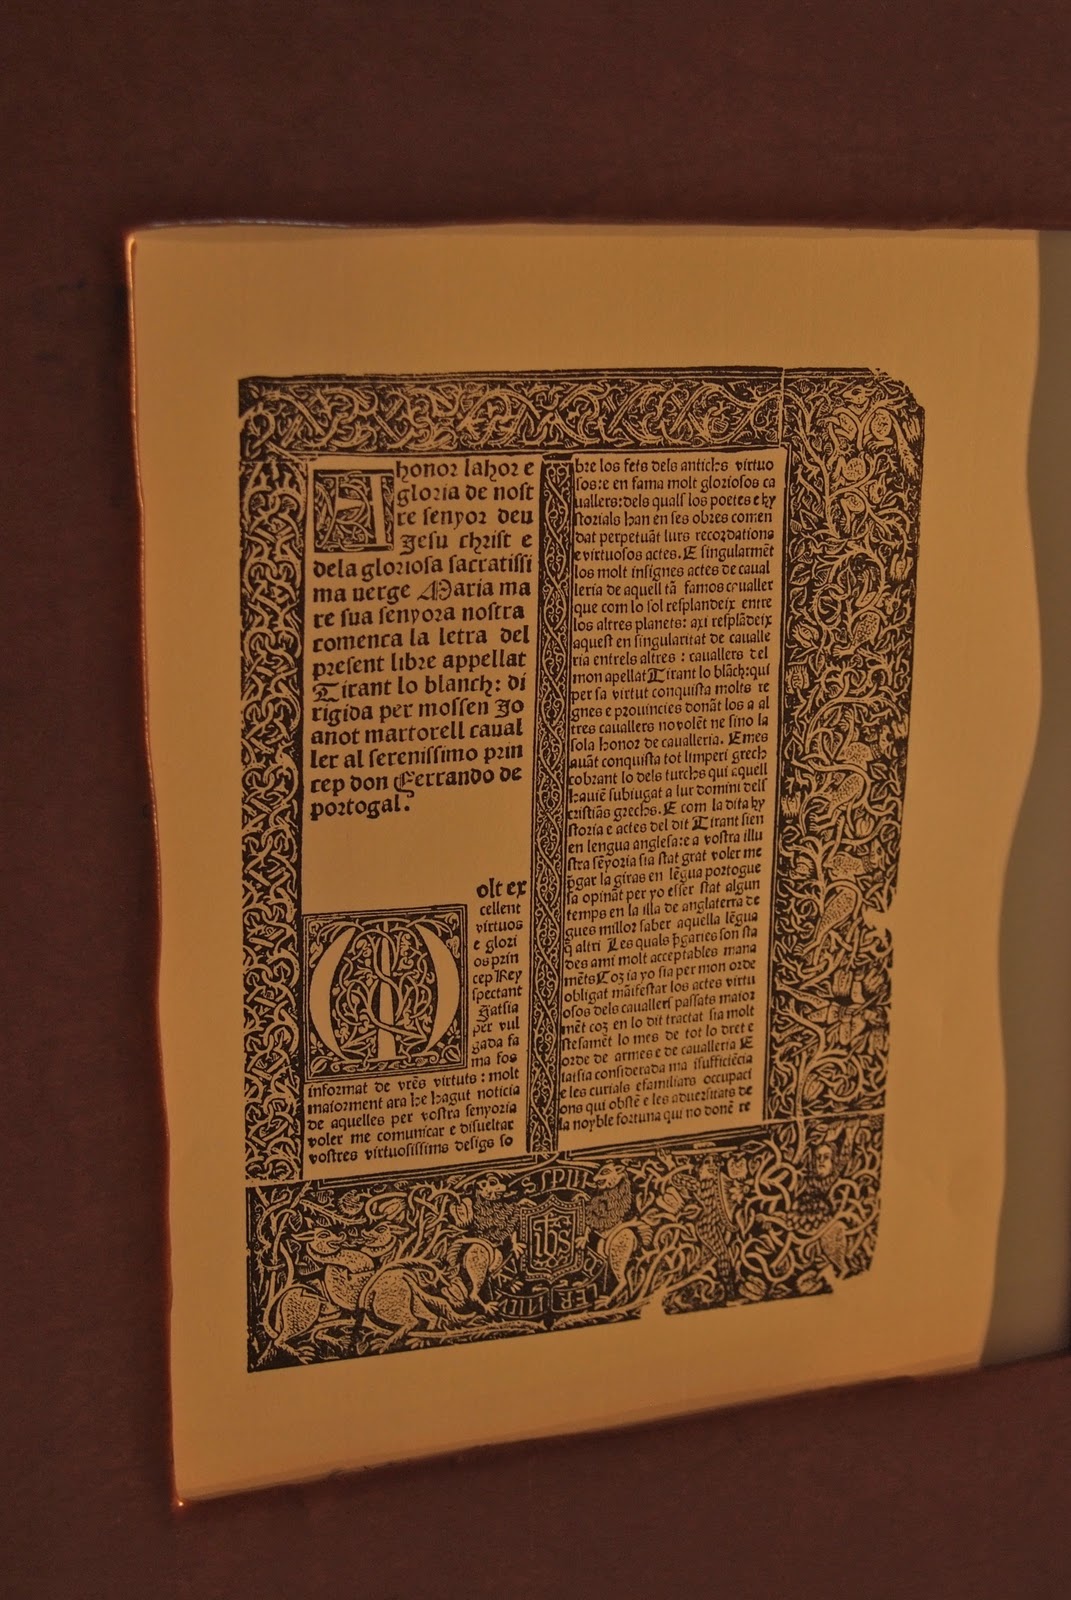 A honor lahor e
gloria de nost
re senyor deu
Jesu christ e
dela gloriosa sacratissi
ma uerge Maria ma
re sua senyora nostra
comenca la letra del
present libre appellat
Tirant lo blanch: di
rigida per mossen Jo
anot martorell caual
ler al serenissimo prin
cep don Ferrando de
portogal.
Molt ex
cellent
virtuos
e glori
os prin
cep Rey
spectant
Jatsia
per vul
gada fa
ma fos
informat de vr̃es virtuts: molt
maiorment ara he hagut noticia
de aquelles per vostra senyoria
voler me comunicar e disuelar
vostres virtuosissims desigs so
bre los fets dels antichs virtuo
sos: e en fama molt gloriosos ca
uallers: dels quals los poetes e hy
storials han en ses obres comen
dat perpetuãt lurs recordations
e virtuosos actes. E singularmẽt
los molt insignes actes de caual
leria de aquell tã famos caualler
que com lo sol resplandeix entre
los altres planets: axi resplãdeix
aquest en singularitat de caualle
ria entrels altres: cauallers del
mon apellat Tirant lo blãch: qui
per sa virtut conquista molts re
gnes e prouincies donãt los a al
tres cauallers no volẽt ne sino la
sola honor de caualleria. E mes
auãt conquista tot limperi grech
cobrant lo dels turchs qui aquell
hauiẽ subiugat a lur domini dels
cristiãs grechs. E com la dita hy
storia e actes del dit Tirant sien
en lengua anglesa: e a vostra illu
stra sẽyoria sia stat grat voler me
p̃gar la giras en lẽgua portogue
sa opinãt per yo esser stat algun
temps en la illa de anglaterra de
gues millor saber aquella lẽgua
q̃ altri Les quals p̃garies son sta
des ami molt acceptables mana
mẽts Coz ia yo sia per mon orde
obligat mãifestar los actes virtu
osos dels cauallers passats maior
mẽt coz en lo dit tractat sia molt
stesamẽt lo mes de tot lo dret e
orde de armes e de caualleria E
iatsia considerada ma isufficiẽcia
e les curials e familiars occupaci
ons qui obstẽ e les aduersitats de
la noyble fortuna qui no donẽ re
ihs